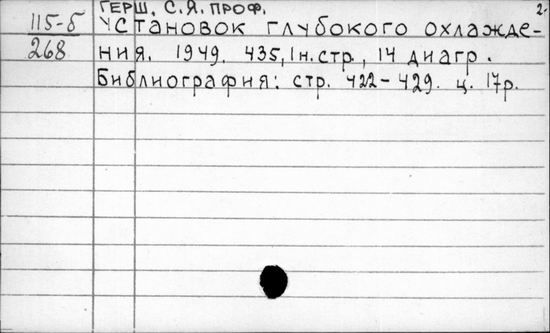 ГЕРШ, С.Я. ПРОФ. 2.
115-б УСТАНОВОК ГЛУБОКОГО ОХЛАЖДЕ-
268 НИЯ. 1949. 435, 1 н. стр., 14 диагр.
Библиография: стр. 422-429. ц. 17р.